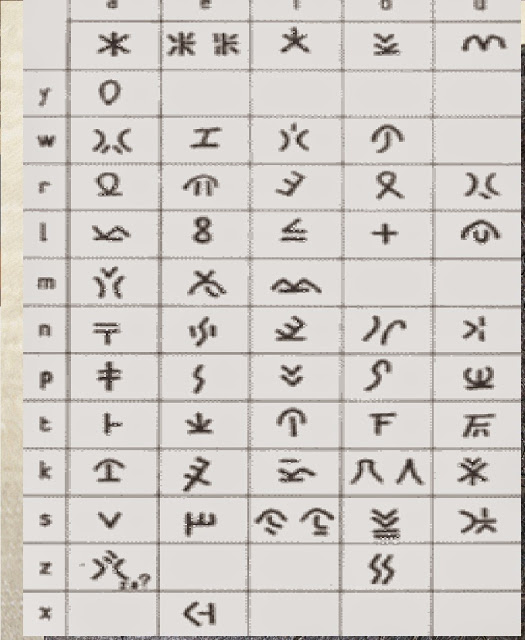 a e i o u
𐠀 𐠁 𐠁 𐠂 𐠃 𐠄
y 𐠅
w 𐠲 𐠳 𐠴 𐠵
r 𐠣 𐠤 𐠥 𐠦 𐠧
l 𐠏 𐠐 𐠑 𐠒 𐠓
m 𐠔 𐠕 𐠖
n 𐠙 𐠚 𐠛 𐠜 𐠝
p 𐠞 𐠟 𐠠 𐠡 𐠢
t 𐠭 𐠮 𐠯 𐠰 𐠱
k 𐠊 𐠋 𐠌 𐠍 𐠍 𐠎
s 𐠨 𐠩 𐠪 𐠪 𐠫 𐠬
z 𐠼 za? 𐠿
x 𐠸